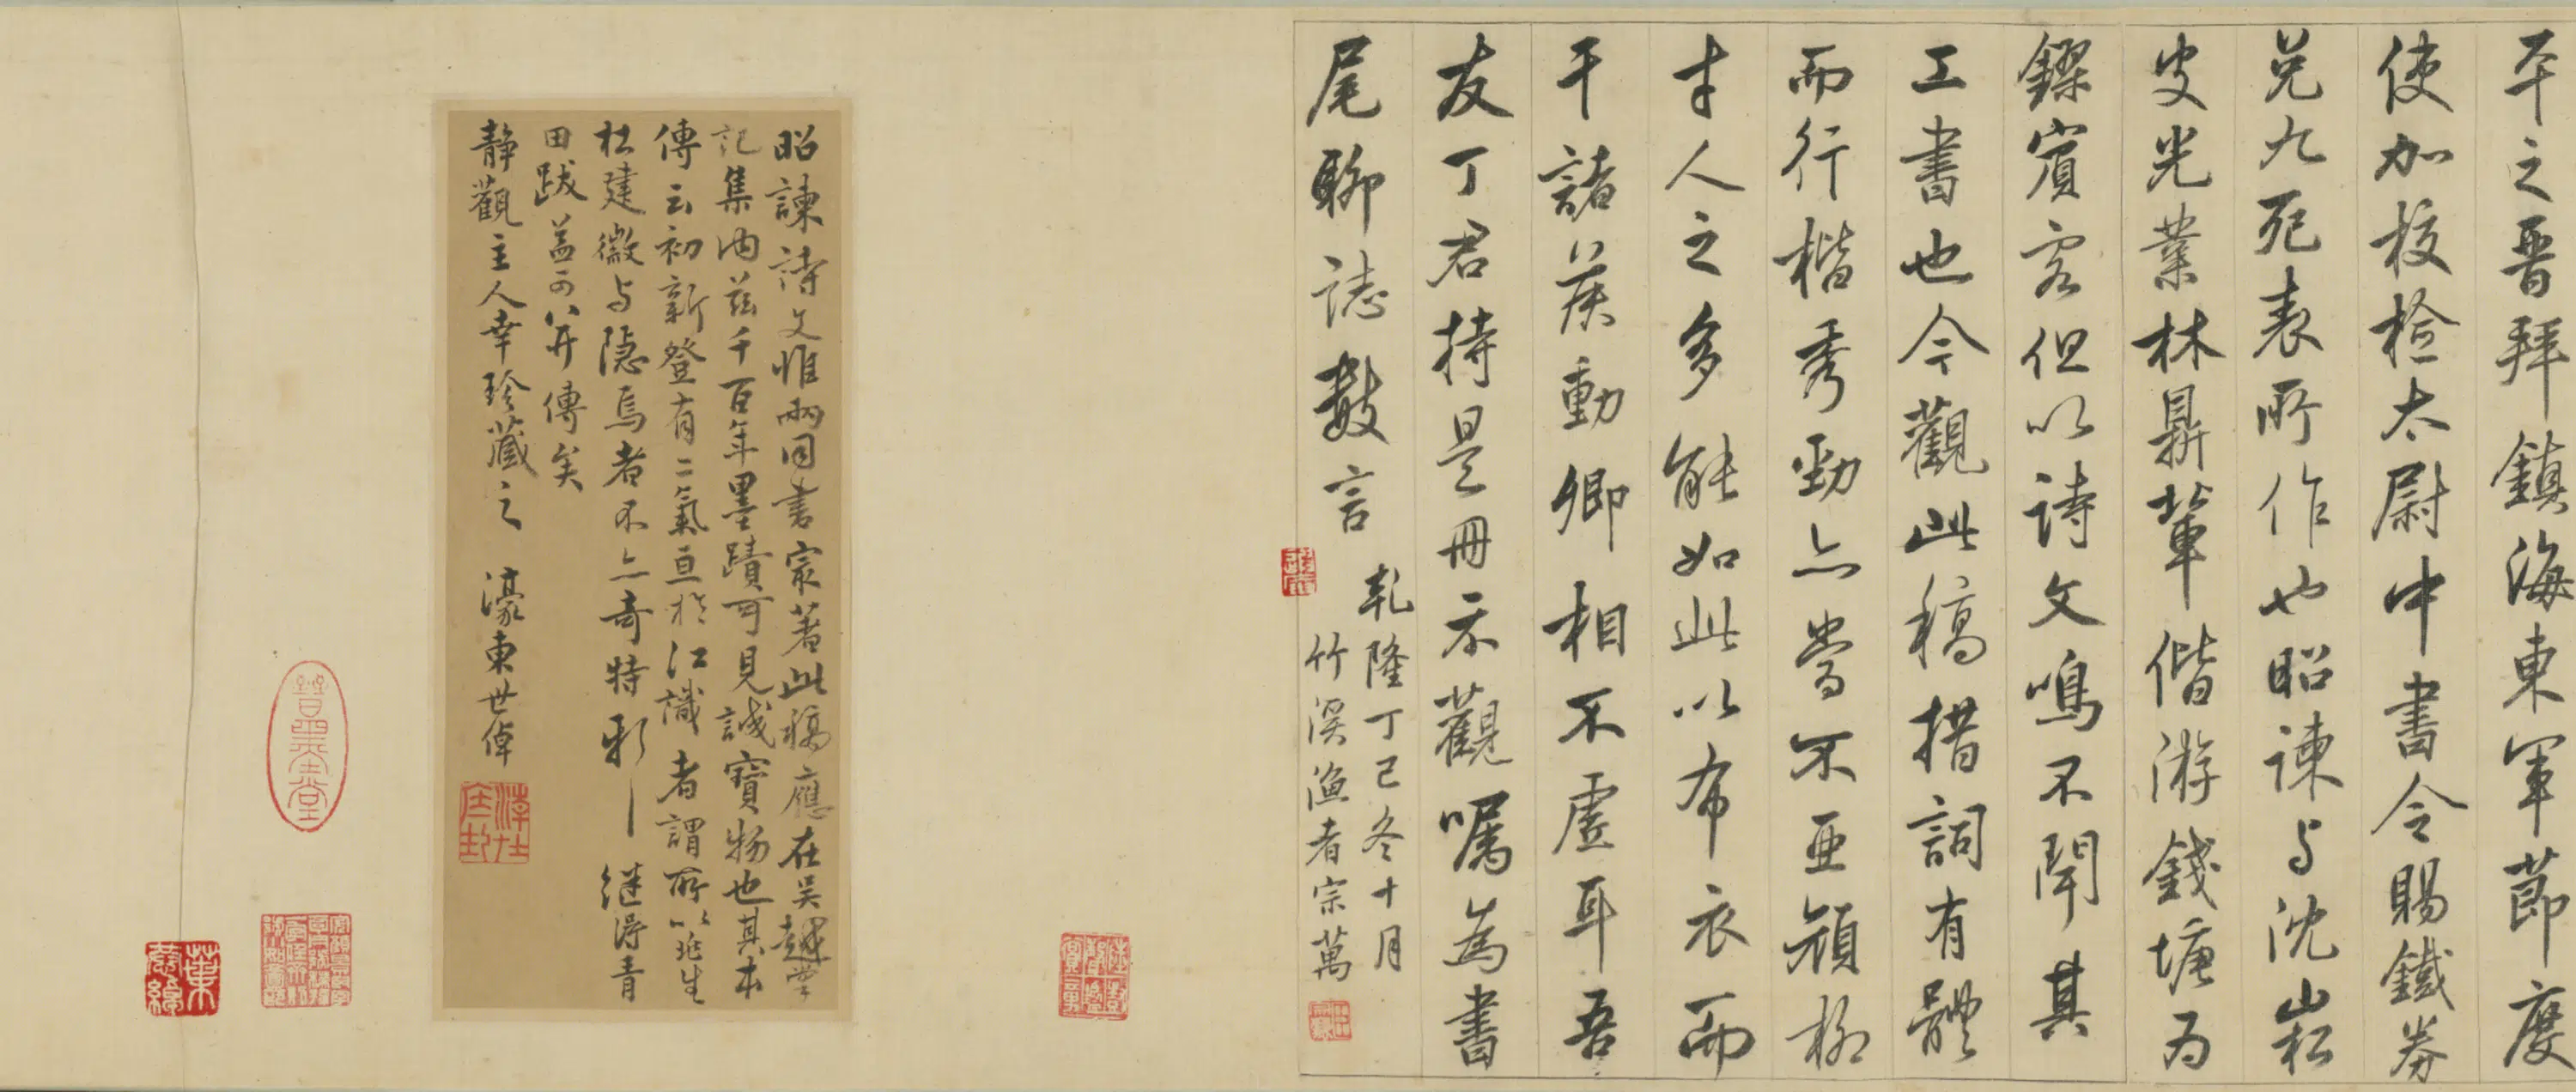 平之晉拜鎮海東軍節度
使加校檢太尉中書令賜鐵券
免九死表所作也昭諫与沈崧
皮光業林鼎輩偕游錢塘為
鏐賓客但以詩文鳴不聞其
工書也今觀此稿措詞有體
而行楷秀勁亦當不亞顏柳
才人之多能如此以布衣而
干諸侯動卿相不虛耳吾
友丁君持是冊示觀囑為書
尾聊誌數言
乾隆丁巳冬十月
竹溪漁者宗萬
昭諫詩文惟兩同書家著此稿應在吳越掌
記集內茲千百年墨蹟可見誠寶物也其本
傳云初新登有二氣亘於江識者謂所以兆生
杜建徽与隱焉者不亦奇特耶 繼得青
田跋益可以并傳矣
靜觀主人幸珍藏之 濠東世倬
普墨堂
葉恭綽